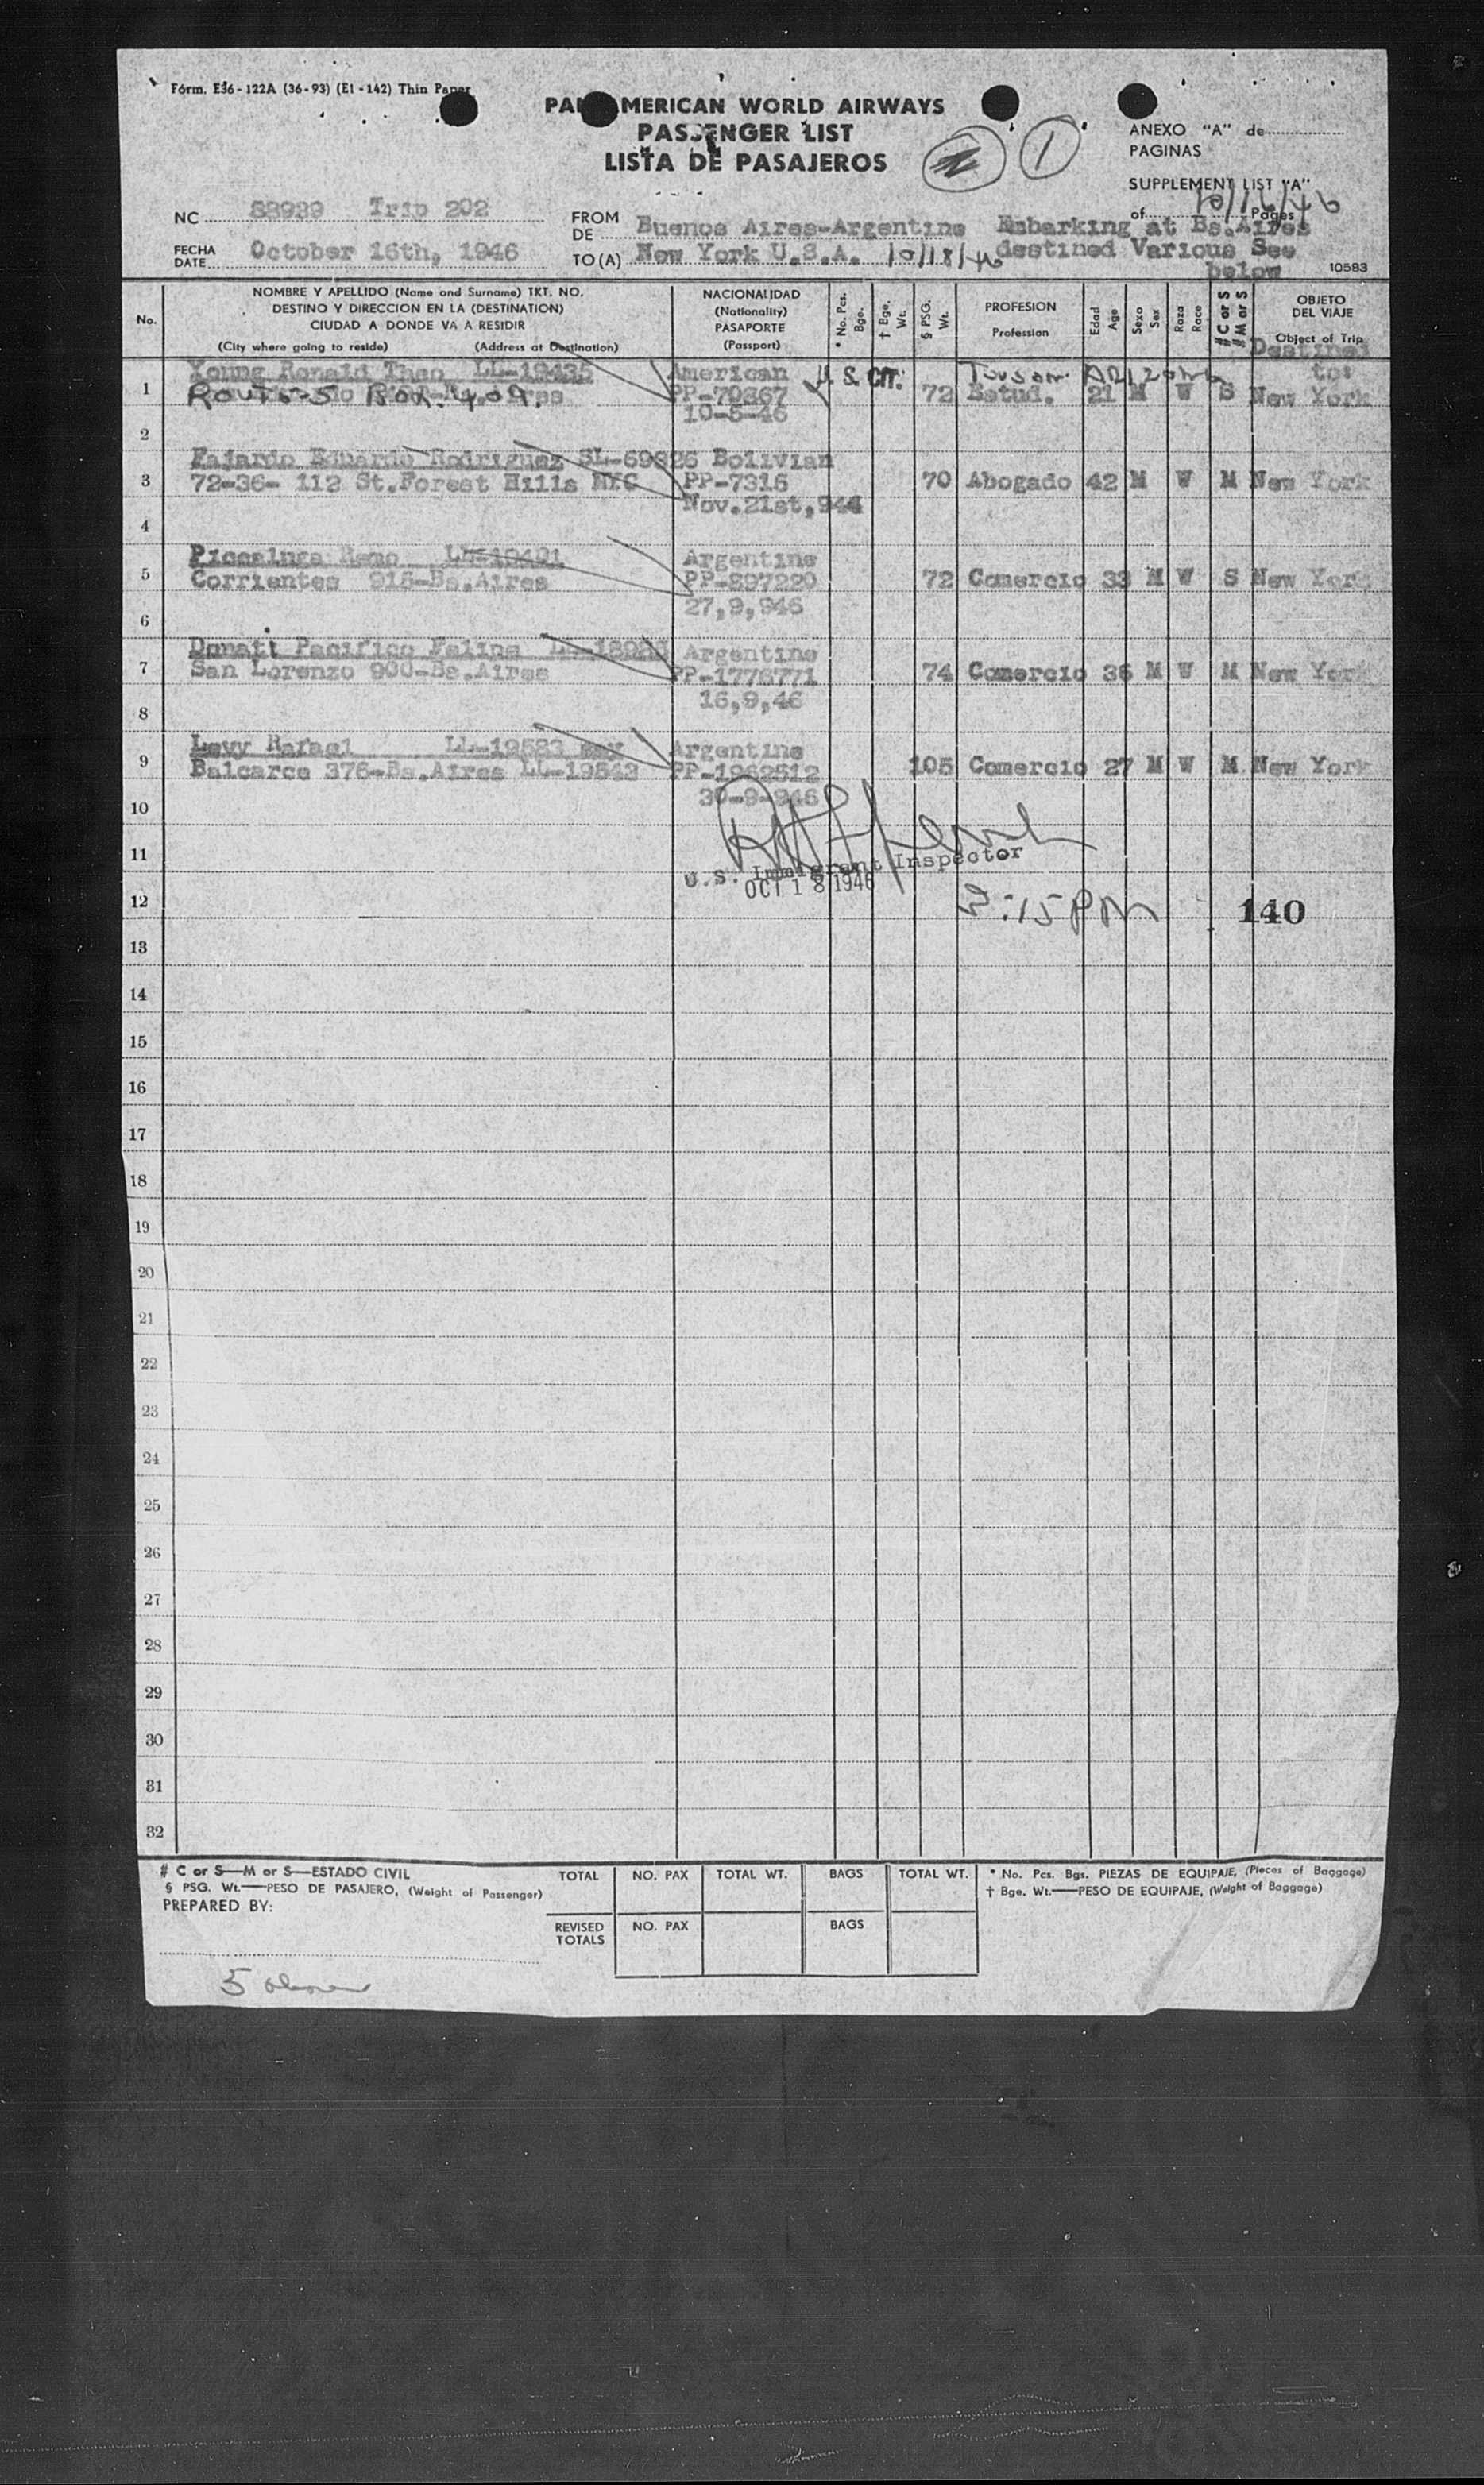 Fórm. E36-122A (36-93) (E1-142) Thin Paper
PAN AMERICAN WORLD AIRWAYS
PASSENGER LIST
LISTA DE PASAJEROS
1
ANEXO "A" de
PAGINAS
SUPPLEMENT LIST "A"
of Pages
10/16/46
NC 88939 Trip 202
FECHA
DATE October 16th, 1946
FROM
DE Buenos Aires-Argentine
TO (A) New York U.S.A. 10/18/46
Embarking at Bs.Aires
destined Various See
below
10583
No.
NOMBRE Y APELLIDO (Name and Surname) TKT. NO.
DESTINO Y DIRECCION EN LA (DESTINATION)
CIUDAD A DONDE VA A RESIDIR
(City where going to reside) (Address at Destination)
NACIONALIDAD
(Nationality)
PASAPORTE
(Passport)
* No. Pcs. Bge.
† Bge. Wt.
§ PSG. Wt.
PROFESION
Profession
Edad
Age
Sexo
Sex
Raza
Race
# C or S
# M or S
OBJETO
DEL VIAJE
Object of Trip
Destined
to:
Young Ronald Theo LL-19435 American U.S. CIT. Tucson Arizona
1 Route-5 Box-409. PP-70867 72 Estud. 21 M W S New York
10-5-46
2
Fajardo Eduardo Rodriguez SL-69826 Bolivian
3 72-36- 112 St.Forest Hills NYC PP-7316 70 Abogado 42 M W M New York
Nov.21st,944
4
Piccaluga Remo LL-19491 Argentine
5 Corrientes 915-Bs.Aires PP-897220 72 Comercio 33 M W S New York
27,9,946
6
Donati Pacifico Felipe Argentine
7 San Lorenzo 900-Bs.Aires PP-1776771 74 Comercio 36 M W M New York
16,9,46
8
Levy Rafael LL-19583 Argentine
9 Balcarce 376-Bs.Aires LL-19543 PP-1962512 105 Comercio 27 M W M New York
30-9-946
10
11
U.S. Immigrant Inspector
OCT 18 1946
12 3:15 PM 140
13
14
15
16
17
18
19
20
21
22
23
24
25
26
27
28
29
30
31
32
# C or S—M or S—ESTADO CIVIL
§ PSG. Wt.—PESO DE PASAJERO, (Weight of Passenger)
PREPARED BY:
TOTAL NO. PAX TOTAL WT. BAGS TOTAL WT.
REVISED
TOTALS NO. PAX BAGS
* No. Pcs. Bgs. PIEZAS DE EQUIPAJE, (Pieces of Baggage)
† Bge. Wt.—PESO DE EQUIPAJE, (Weight of Baggage)
5